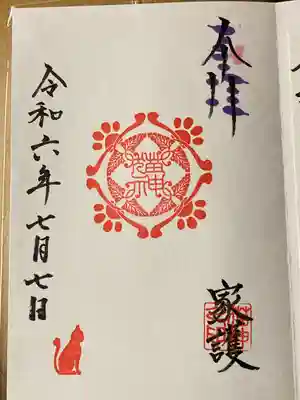 奉拝
家護
令和六年七月七日